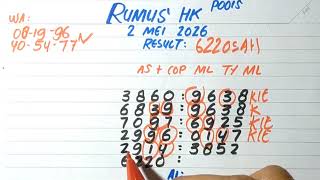 RUMUS HK POOLS
WA:
08-19-96
40-54-77
2 MEI 2026
RESULT: 6220
AS + COP ML TY ML
3860:9638 KIE
6839:9638 K
7097:6925 KIE
2996:0147 KIE
2914:3852
6220: